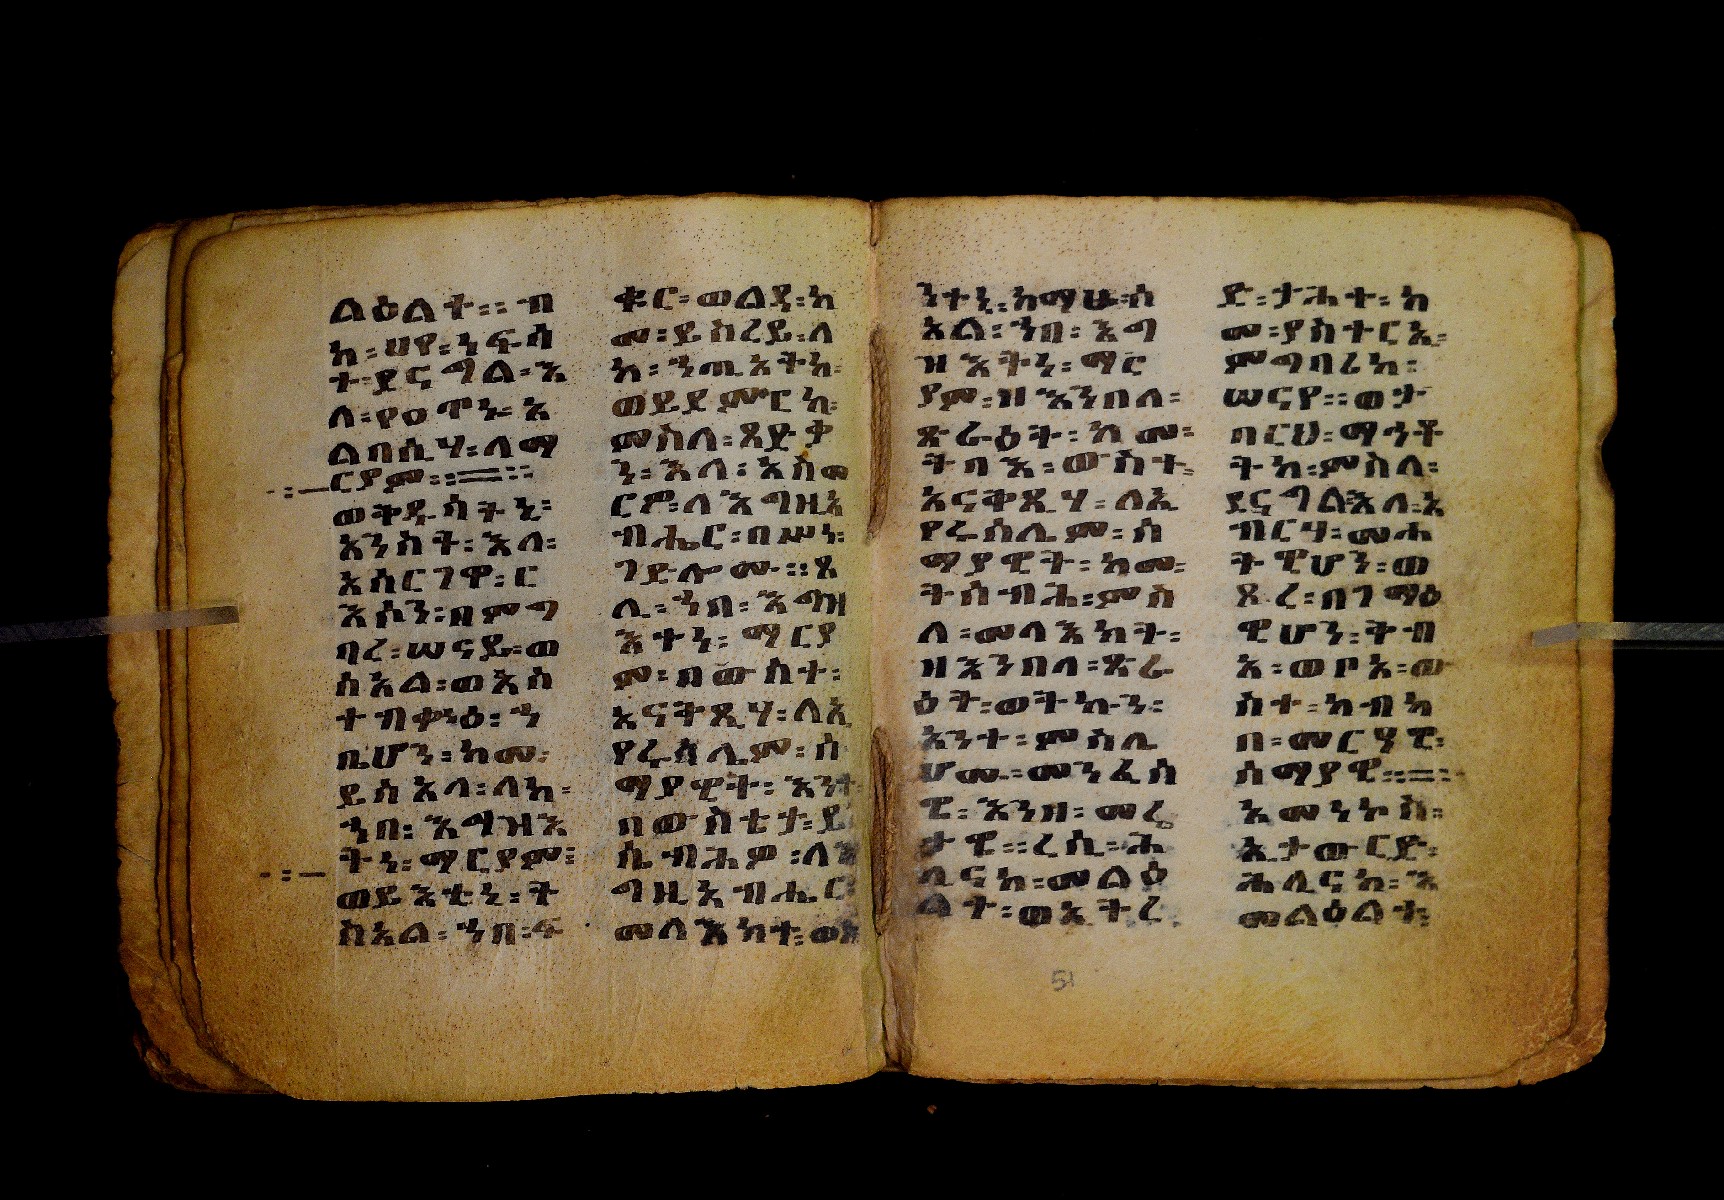 ልዕልት፡፡ ብ
ከ፡ ሀየ፡ ነፍሳ
ተ፡ ደናግል፡ እ
ለ፡ የዐጥኑ፡ አ
ልባሲሃ፡ ለማ
ርያም፡፡
ወቅዱሳት፡
አንስት፡ እለ፡
አሰርገዋ፡ ር
እሶን፡ በምግ
ባረ፡ ሠናይ፡ ወ
ስአል፡ ወአስ
ተብቍዕ፡ ኀ
ቤሆን፡ ከመ፡
ይስአላ፡ ለከ፡
ኀበ፡ እግዝእ
ትነ፡ ማርያም፡
ወይእቲኒ፡ ት
ስአል፡ ኀበ፡ ፍ
ቁር፡ ወልዳ፡ ከ
መ፡ ይስረይ፡ ለ
ከ፡ ኀጢአትከ፡
ወይደምርከ፡
ምስለ፡ ጻድቃ
ን፡ እለ፡ አስመ
ርዎ፡ ለእግዚአ
ብሔር፡ በሥነ፡
ገድሎሙ፡፡ ጸ
ሊ፡ ኀበ፡ እግዝ
እትነ፡ ማርያ
ም፡ በውስተ፡
አናቅጺሃ፡ ለኢ
የሩሳሌም፡ ሰ
ማያዊት፡ እንተ
በውስቴታ፡ ይ
ሴብሕዎ፡ ለእ
ግዚአብሔር፡
መላእክት፡ ወአ
ንተኒ፡ ከማሁ፡ ሰ
አል፡ ኀበ፡ እግ
ዝእትነ፡ ማር
ያም፡ ዝእንበለ፡
ጽራዕት፡ ከመ፡
ትባእ፡ ውስተ፡
አናቅጺሃ፡ ለኢ
የሩሳሌም፡ ሰ
ማያዊት፡ ከመ፡
ትሰብሕ፡ ምስ
ለ፡ መላእክት፡
ዝእንበለ፡ ጽራ
ዕት፡ ወትኩን፡
አንተ፡ ምስሌ
ሆሙ፡ መንፈሳ
ዌ፡ እንዘ፡ መሬ
ታዌ፡፡ ረሲ፡ ሕ
ሊናከ፡ መልዕ
ልተ፡ ወኢትረ
ድ፡ ታሕተ፡ ከ
መ፡ ያስተርኢ፡
ምግባሪከ፡
ሠናየ፡፡ ወታ
በርህ፡ ማኅቶ
ተከ፡ ምስለ፡
ደናግል፡ እለ፡ አ
ብርሃ፡ መሐ
ትዊሆን፡ ወ
ጾረ፡ በገማዕ
ዊሆን፡ ቅብ
አ፡ ወቦአ፡ ው
ስተ፡ ከብካ
በ፡ መርዓዊ፡
ሰማያዊ፡፡
እመነኮስ፡
ኢታውርድ፡
ሕሊናከ፡ እ
መልዕልት፡
51